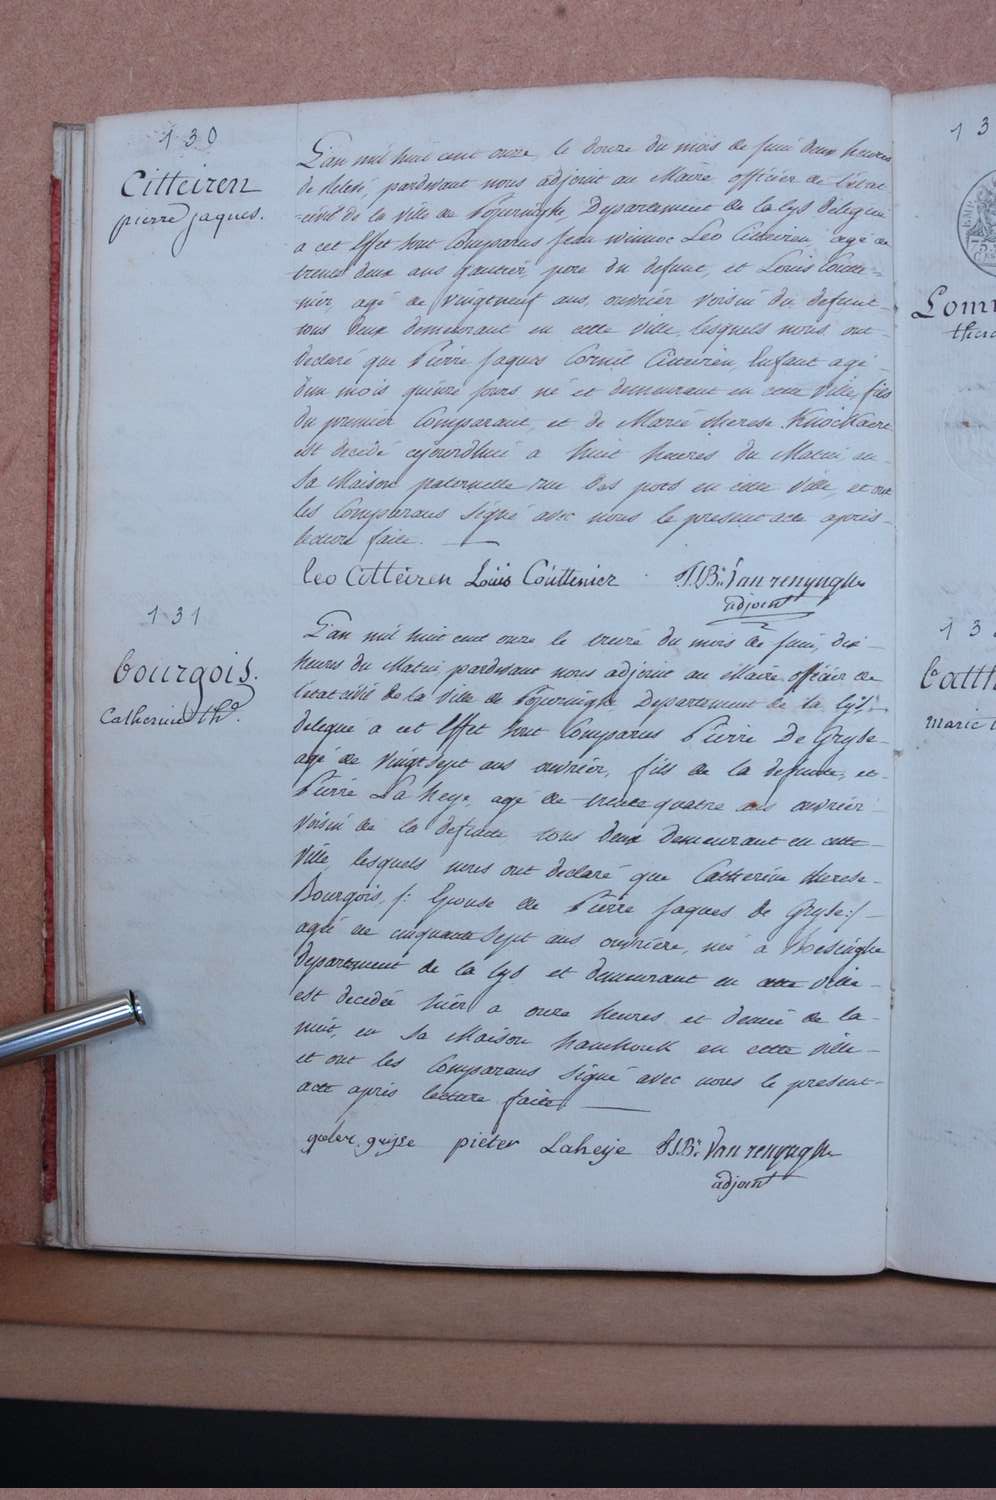 130
Citteiren
pierre jaques.
L'an mil huit cent onze, le douze du mois de juin deux heures
de relevé, pardevant nous adjoint au Maire officier de l'état
civil de la ville de Poperinghe, Departement de la Lys delegué
a cet Effet sont Comparus jean winnoc Leo Citteiren, agé de
trente deux ans gautier, pere du defunt, et Louis Coutte-
nier, agé de vingtneuf ans, ouvrier voisin du defunt
tous deux demeurant en cette ville, lesquels nous ont
declaré que Pierre jaques Cornil Citteiren, Enfant agé
d'un mois quinze jours né et demeurant en cette ville, fils
du premier Comparant, et de Marie therese Knockaert
est decedé cejourdhui a huit heures du Matin en
sa Maison paternelle rue des pots en cette ville, et ont
les Comparans signé avec nous le present acte après
lecture faite.
Leo Citteiren Louis Couttenier P.J.Bn. Vanrenynghe
adjoint
131
bourgois.
Catherine thse.
L'an mil huit cent onze le treize du mois de juin, dix
heures du Matin, pardevant nous adjoint au Maire officier de
l'état civil de la ville de Poperinghe Departement de la Lys
delegué a cet Effet sont Comparus Pierre De Gryse
agé de vingt sept ans ouvrier, fils de la defunte, et
Pierre La heye, agé de trente quatre ans ouvrier
voisin de la defunte, tous deux demeurant en cette
ville, lesquels nous ont declaré que Catherine therese
Bourgois, /: Epouse de Pierre jaques de Gryse :/
agée de cinquante sept ans ouvrière, né a
departement de la Lys et demeurant en cette ville
est decedée hier a onze heures et demie de la
nuit, en sa Maison en cette ville
et ont les Comparans signé avec nous le present
acte après lecture faite.
pieter Laheye P.J.Bn. Vanrenynghe
adjoint
13
Lomm
13
Catth
marie